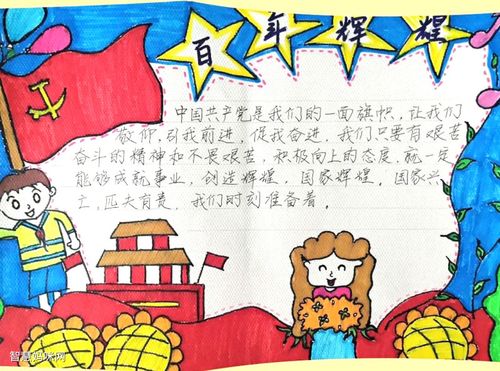 百年辉煌
中国共产党是我们的一面旗帜，让我们
敬仰，引我前进，促我奋进，我们只要有艰苦
奋斗的精神和不畏艰苦，积极向上的态度，就一定
能够成就事业，创造辉煌，国家辉煌，国家兴
亡，匹夫有责，我们时刻准备着。
智慧妈咪网